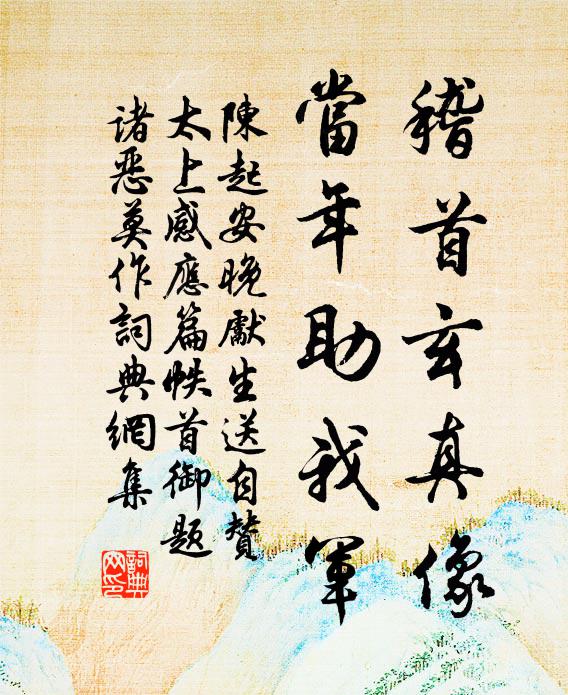 稽首玄真像
當年助我軍
陳起安晚獻生送自贊
太上感應篇帙首御题
诸惡莫作詞典網集
詞典
网印